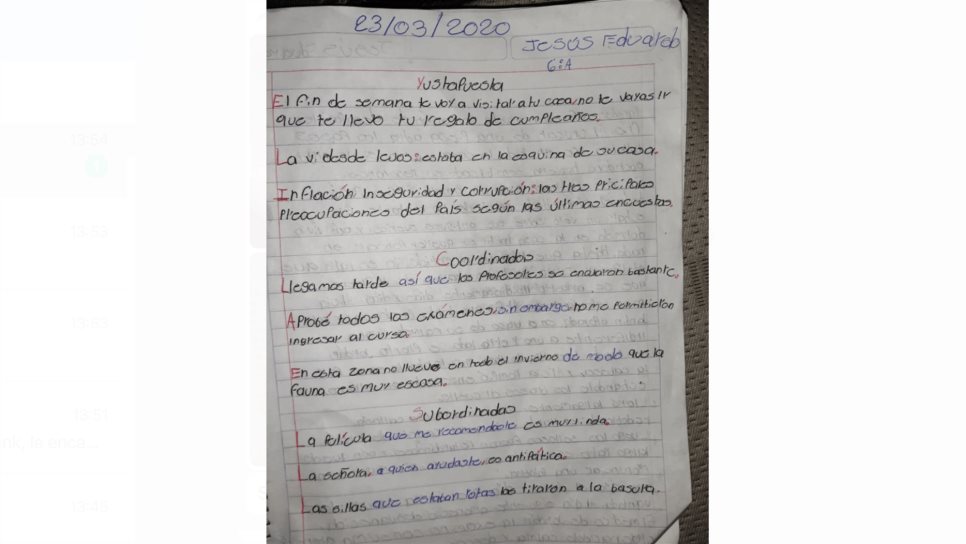 23/03/2020
Jesús Eduardo
6:A
Yustapuesta
El fin de semana te voy a visitar a tu casa, no te vayas ir
que te llevo tu regalo de cumpleaños.
La vi desde lejos: estaba en la esquina de su casa.
Inflación Inseguridad y corrupción: las tres pricipales
preocupaciones del país según las últimas encuestas.
Coordinadas
Llegamos tarde así que los profesores se enojaron bastante.
Aprobé todos los exámenes, sin embargo, no me permitieron
ingresar al curso.
En esta zona no llueve en todo el invierno de modo que la
fauna es muy escasa.
Subordinadas
La película que me recomendaste es muy linda.
La señora, a quien ayudaste, es antipática.
Las sillas que estaban rotas las tiraron a la basura.
13:54
13:53
13:51
13:45